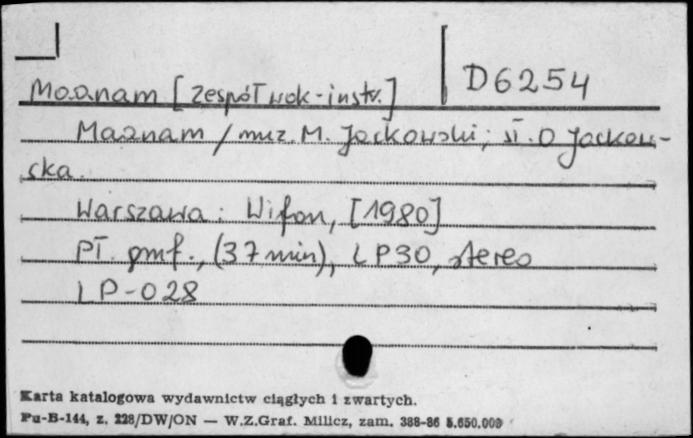 D6254
Maanam [zespół wok-instr.]
Maanam / muz. M. Jackowski; sł. O Jackow-
ska.
Warszawa: Wifon, [1980]
Pł. gmf., (37 min), LP30, stereo
LP-028
Karta katalogowa wydawnictw ciągłych i zwartych.
Pu-B-144, z. 228/DW/ON — W.Z.Graf. Milicz, zam. 388-86 5.650.000